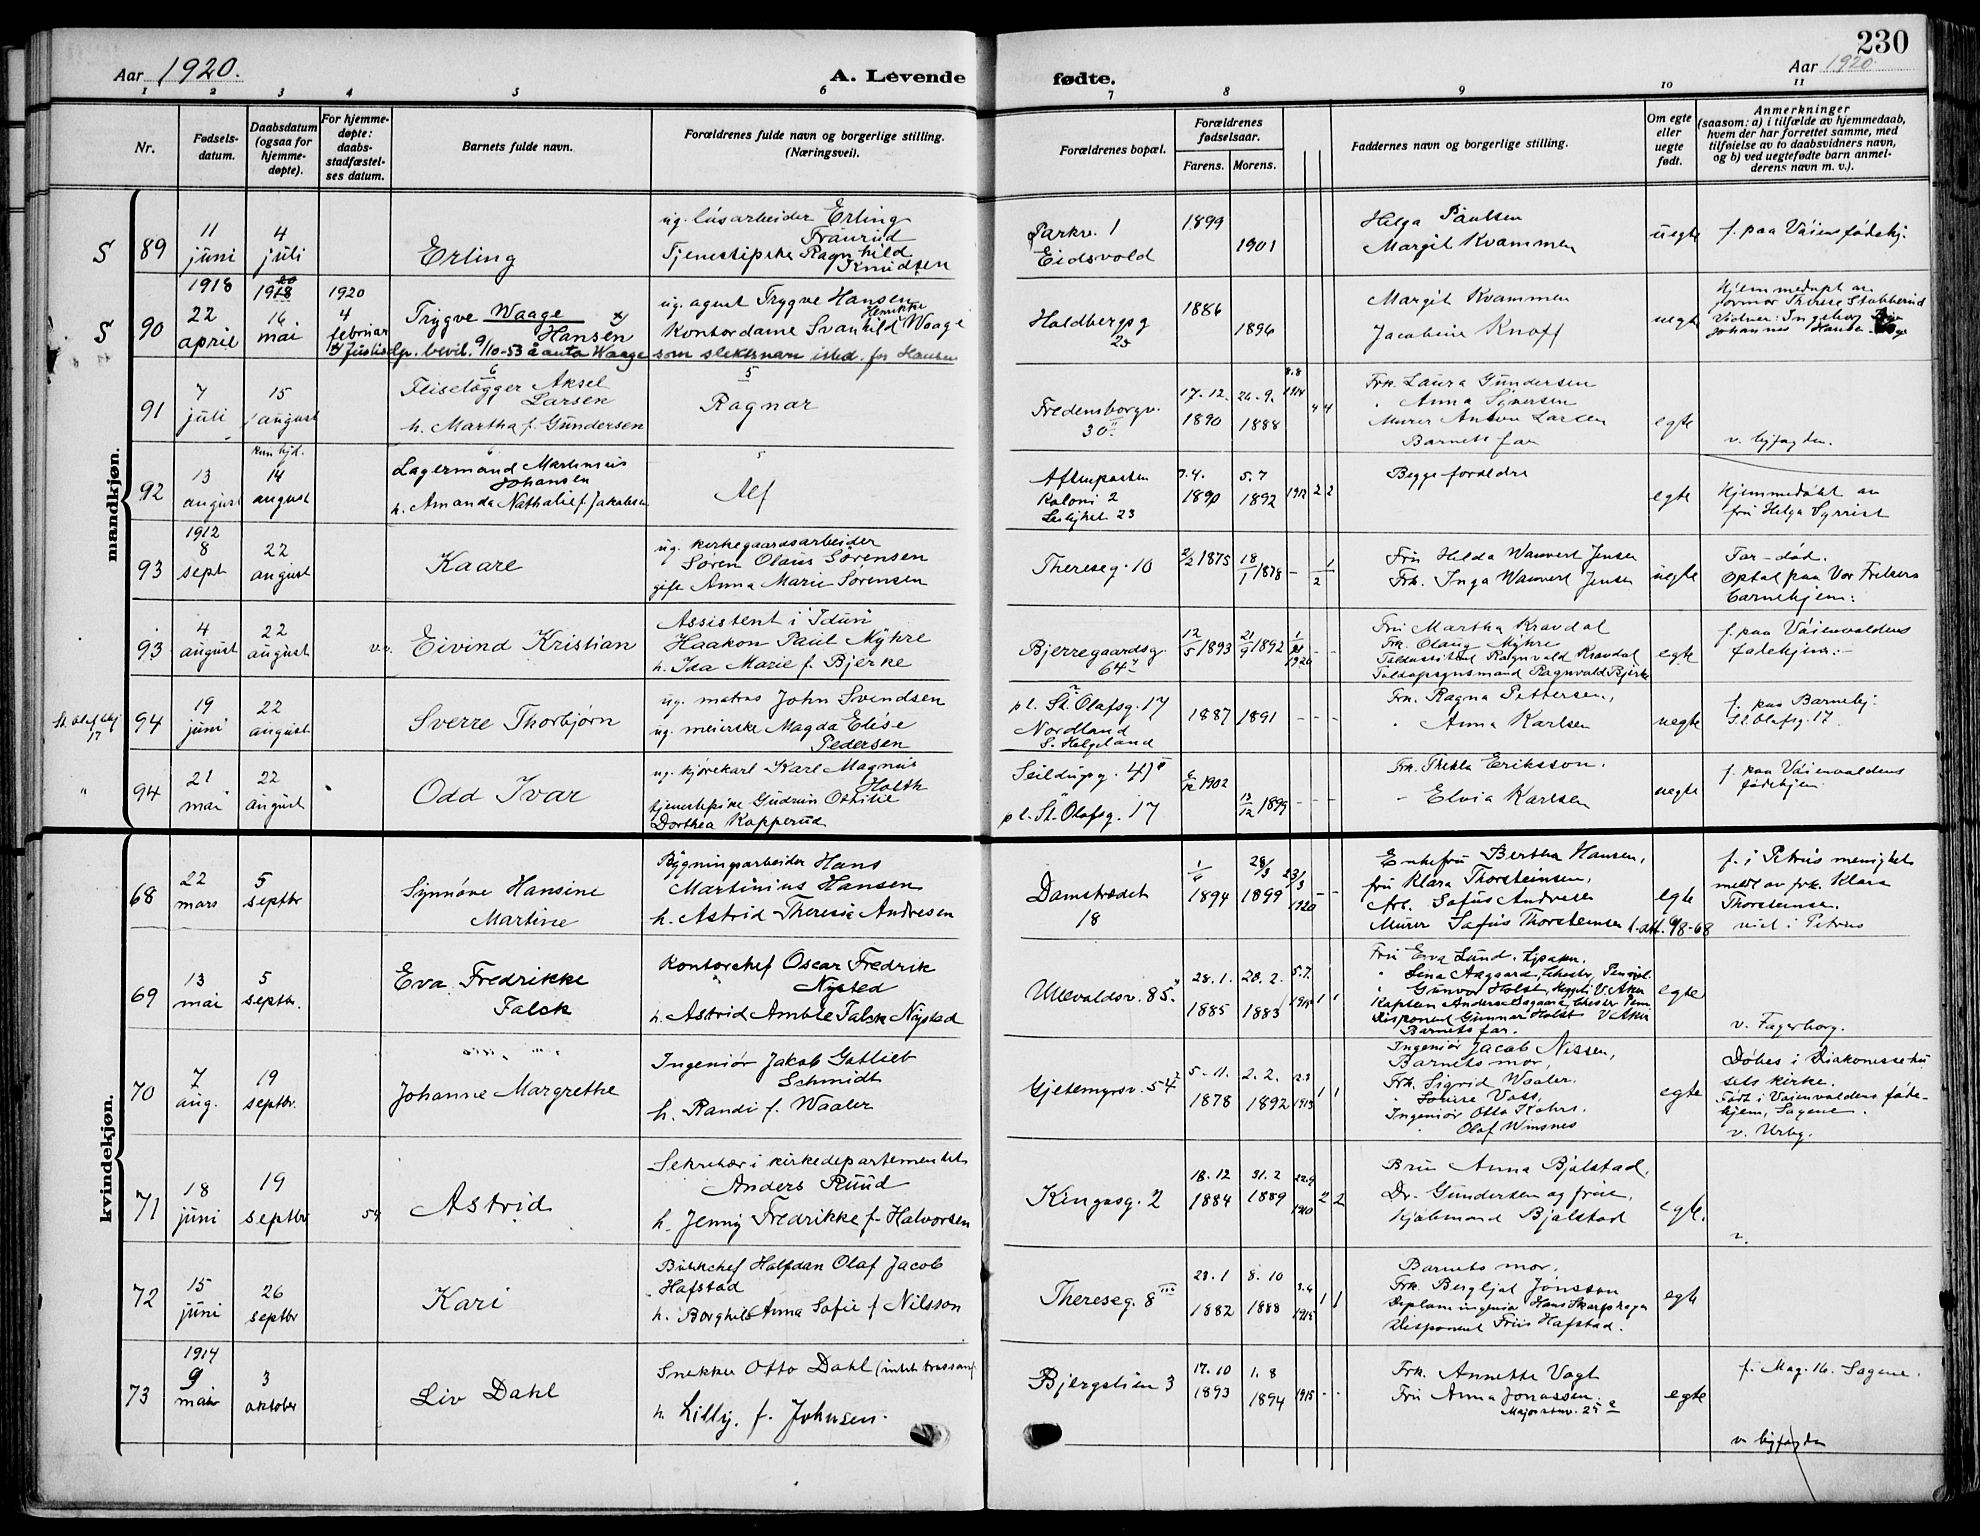 230
Aar 1920.
A. Levende fødte.
Aar 1920
1 2 3 4 5 6 7 8 9 10 11
Nr.
Fødsels-
datum.
Daabsdatum
(ogsaa for
hjemme-
døpte).
For hjemme-
døpte:
daabs-
stadfæstel-
ses datum.
Barnets fulde navn.
Forældrenes fulde navn og borgerlige stilling.
(Næringsvei).
Forældrenes bopæl.
Forældrenes
fødselsaar.
Farens. Morens.
Faddernes navn og borgerlige stilling.
Om egte
eller
uegte
født.
Anmerkninger
(saasom: a) i tilfælde av hjemmedaab,
hvem der har forrettet samme, med
tilføielse av to daabsvidners navn,
og b) ved uegtefødte barn anmel-
derens navn m. v.).
mandkjøn.
S 89
11
juni
4
juli
Erling
ug. løsarbeider Erling
Fraurud
Tjenestipike Ragnhild
Knudsen
Parkv. 1
Eidsvold
1899
1901
Helga Paulsen
Margit Kvammen
uegte
f. paa Vaiens fødehj.
S 90
1918
22
april
16
mai
1920
4
februar
Trygve Waage
Hansen
ug. agent Trygve Hansen
Kontordame Svanhild Henrikke Waage
x) Justisdp. bevil. 9/10-53 å anta Waage som slektsnavn isted. for Hansen
Holdbergsg
23
1886
1896
Margit Kvammen
Jacobine Knoff
uegte
Hjemmedøpt av
farmor Therese Stubberud
Vidner: Ingeborg
Johannes
91
7
juli
15
august
Fliselægger Aksel
Larsen
h. Martha f. Gundersen
Ragnar
Fredensborgv.
30
17.12.
1890
26.9.
1888
8.8
1914
4 4
Frk. Laura Gundersen
" Anna Syversen
Murer Anton Larsen
Barnets far
egte
v. byfogden.
92
13
august
14
august
Lagermand Martinius
Johansen
h. Amanda Nathalie f. Jakobsen
Alf
Aftenposten
Koloni 2
23
7.4.
1890
5.7
1892
1912
2 2
Begge foreldre
egte
Hjemmedøbt av
fru Helga Syrrist
93
1912
8
sept
22
august
Kaare
ug. kirkegaardsarbeider
Søren Olaus Sørensen
gift Anna Marie Sørensen
Thereseg. 10
2/2 1875
18/1 1878
1/2
Fru Helda Wauvert Jensen
Frk. Inga Wauvert Jensen
uegte
Far død.
Optat paa Vor Frelsers
barnehjem.
93
4
august
22
august
Eivind Kristian
Assistent i Idun
Haakon Paul Myhre
h. Ida Marie f. Bjerke
Bjerregaardsg.
64
12/5 1893
21/9 1892
1920
Fru Martha Kravdal
Frk. Olaug Myhre
Toldassistent Ragnvald Kravdal
Toldopsynsmand Ragnvald Bjerke
egte
f. paa Vaienvoldens
fødehjem.
St. Olafs hj
17
94
19
juni
22
august
Sverre Thorbjørn
ug. matros John Svendsen
ug. meierske Magda Elise
Pedersen
pl. St. Olafsg. 17
Nordland
S. Helgeland
1887
1891
Frk. Ragna Pettersen,
" Anna Karlsen
uegte
f. paa Barnehj.
St. Olafsg. 17.
"
94
21
mai
22
august
Odd Ivar
ug. kjørekarl Karl Magnus
Holth
tjenestepike Gudrun Othilie
Dorthea Kopperud
Seildugsg. 41
pl. St. Olafsg. 17
1902
13/12 1899
Frk. Thekla Eriksson.
" Elvia Karlsen
uegte
f. paa Vaienvoldens
fødehjem
kvindekjøn.
68
22
mars
5
septbr
Synnøve Hansine
Martine
Bygningsarbeider Hans
Martinius Hansen
h. Astrid Theresie Andresen
Damstrædet
18
1894
28/3
1899
23/3
1920
Enkefru Bertha Hansen,
fru Klara Thorsteinsen,
Arb. Sofus Andresen
Murer Sofus Thorsteinsen
egte
l.att. 9/8-68
f. i Petrus menighet
meldt av frk. Klara
Thorsteinsen.
viet i Petrus
69
13
mai
5
septbr.
Eva Fredrikke
Falck
Kontorchef Oscar Fredrik
Nysted
h. Astrid Amble Falck Nysted
Ullevaldsv. 85.
28.1.
1885
20.2.
1883
5.7.
1915
1 1
Fru Eva Lund,
" Lina Aagaard,
" Gunvor Holst, V. Aker
Kaptein Anders Aagaard,
Disponent Gunnar Holst V. Aker
Barnets far.
egte
v. Fagerborg.
70
7
aug.
19
septbr.
Johanne Margrethe
Ingeniør Jakob Gotlieb
Schmidt
h. Randi f. Waaler
Gjetemyrsv. 54
5.11.
1878
2.2.
1892
1915
1 1
Ingeniør Jacob Nissen,
Barnets mor,
Frk. Sigrid Waaler.
" Louise Voss,
Ingeniør Otto Kahrs.
" Olaf Winsnes
egte
Døbes i Diakonissehu
sets kirke.
Født i Vaienvoldens føde-
hjem, Sagene.
v. Urbg.
71
18
juni
19
septbr
54
Astrid
Sekretær i kirkedepartementet
Anders Ruud
h. Jenny Fredrikke f. Halvorsen
Kingosg. 2
18.12
1884
31.2
1889
22.9
1910
2 2
Fru Anna Bjølstad.
Dr. Gundersen og frue,
Kjøbmand Bjølstad
egte.
v.
72
15
juni
26
septbr
Kari
Halfdan Olaf Jacob
Hafstad
h. Borghild Anna Sofie f. Nilsson
Thereseg. 8 III
23.1
1882
8.10
1888
3.6
1915
1 1
Barnets mor.
Frk. Bergljot Jønsson
Diplomingeniør Hans Skarphagen
Disponent Friis Hafstad.
egte
73
1914
9
mai
3
oktober
Liv Dahl
Snekker Otto Dahl
h. Lilly. f. Johnsen.
Bjergslien 3
17.10
1893
1.8
1894
1915
Frk. Annette Vogt
Fru Anna Jonassen.
Majorstuv. 25
egte
f. Mag. 16. Sagene.
v. byfogden